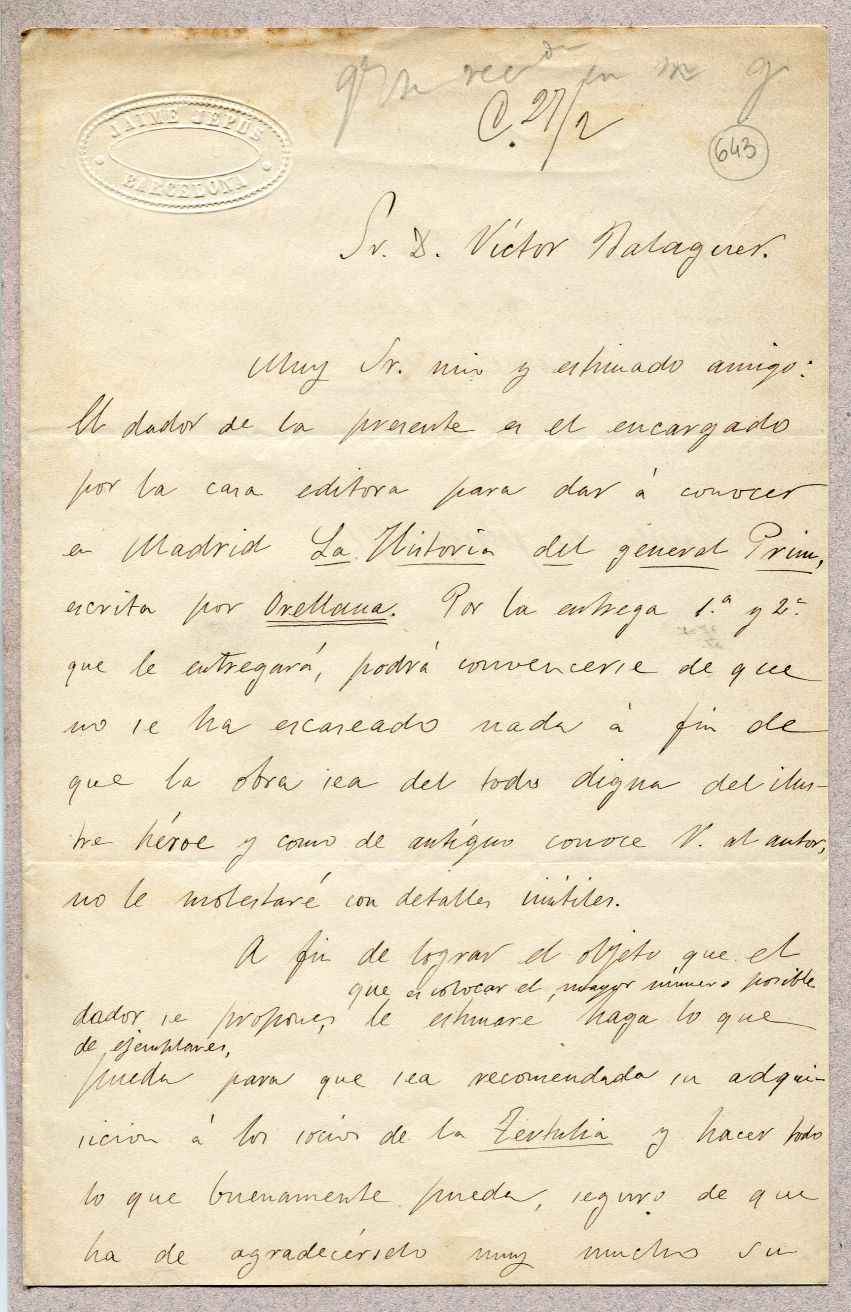 JAIME JEPÚS
BARCELONA
C. 27/2
643
Sr. D. Víctor Balaguer.
Muy Sr. mio y estimado amigo:
El dador de la presente es el encargado
por la casa editora para dar á conocer
en Madrid La Historia del general Prim,
escrita por Orellana. Por la entrega 1.ª y 2.ª
que le entregará, podrá convencerse de que
no se ha escaseado nada á fin de
que la obra sea del todo digna del ilus-
tre héroe y como de antíguo conoce V. al autor,
no le molestaré con detalles inútiles.
A fin de lograr el objeto que el
que es colocar el mayor número posible
dador se propone, le estimaré haga lo que
de ejemplares,
pueda para que sea recomendada su adqui-
sicion á los socios de la Tertulia y hacer todo
lo que buenamente pueda, seguro de que
ha de agradecérselo muy mucho su